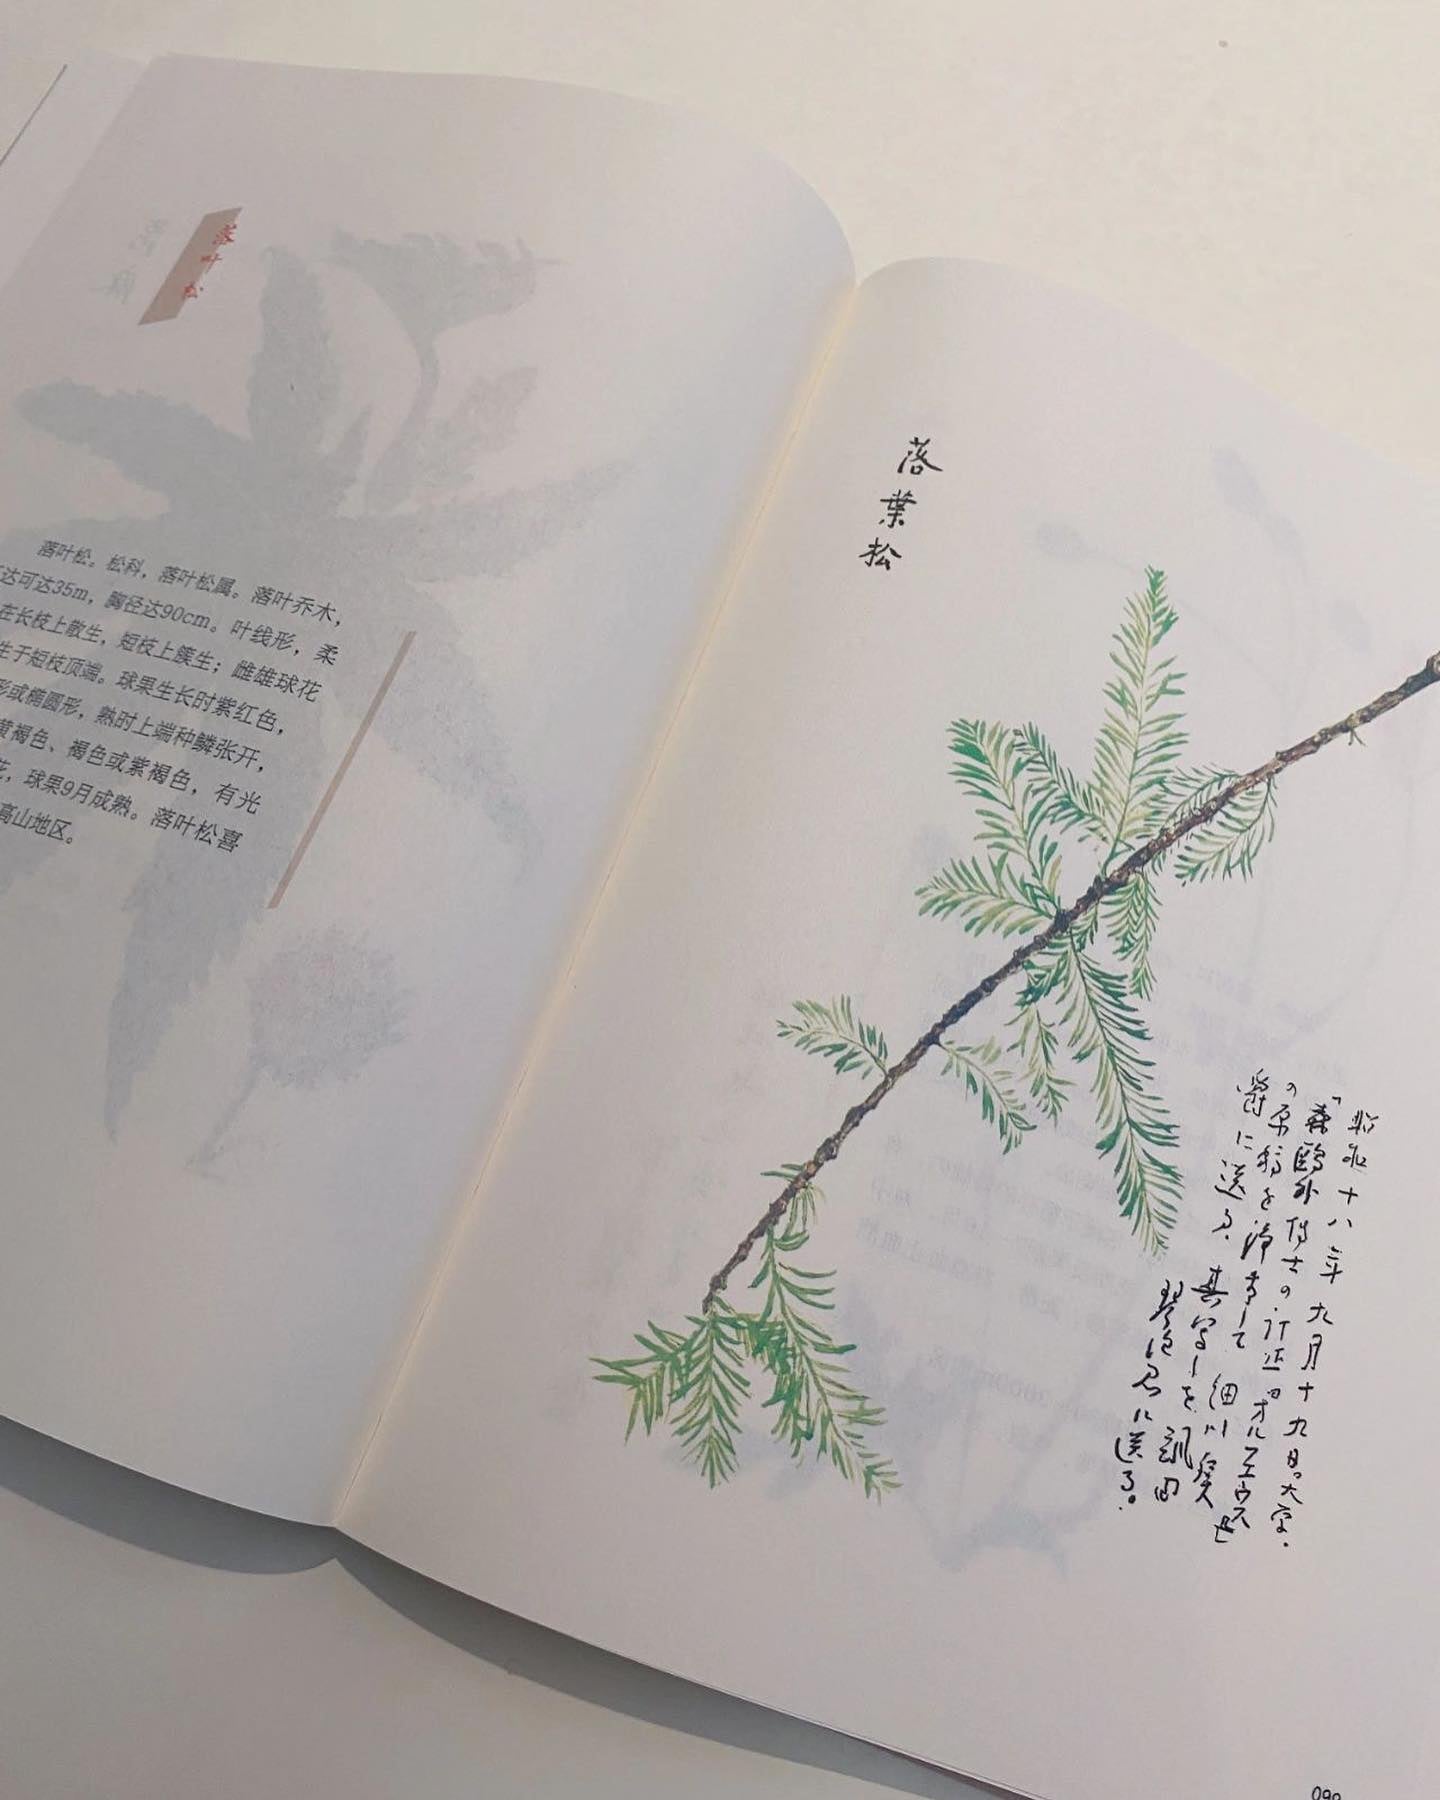 落叶松
落叶松。松科，落叶松属。落叶乔木，
达可达35m，胸径达90cm。叶线形，柔
在长枝上散生，短枝上簇生；雌雄球花
生于短枝顶端。球果生长时紫红色，
形或椭圆形，熟时上端种鳞张开，
黄褐色、褐色或紫褐色，有光
花，球果9月成熟。落叶松喜
高山地区。
落葉松
昭和十八年九月十九日。大学。
「森鷗外博士の
の原稿を浄書して 細川
に送る。其写しを
君に送る。
090